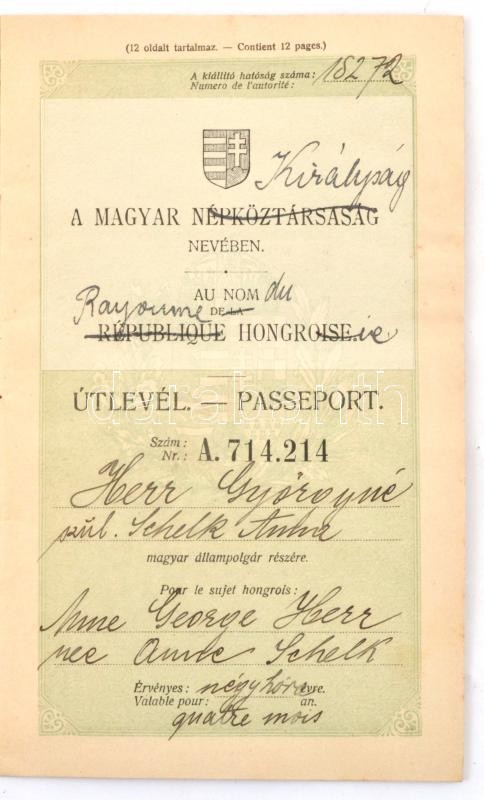 (12 oldalt tartalmaz. — Contient 12 pages.)
A kiállitó hatóság száma: 18272
Numero de l'autorité:
Királyság
A MAGYAR NÉPKÖZTÁRSASÁG
NEVÉBEN.
AU NOM du
Royaume DE LA
RÉPUBLIQUE HONGROISE.
darabanth.com
ÚTLEVÉL. — PASSEPORT.
Szám:
Nr.: A. 714.214
Herr Györgyné
szül. Schelk Anna
magyar állampolgár részére.
Pour le sujet hongrois:
Mme George Herr
nee Anne Schelk
Érvényes: négy hóra évre.
Valable pour: an.
quatre mois